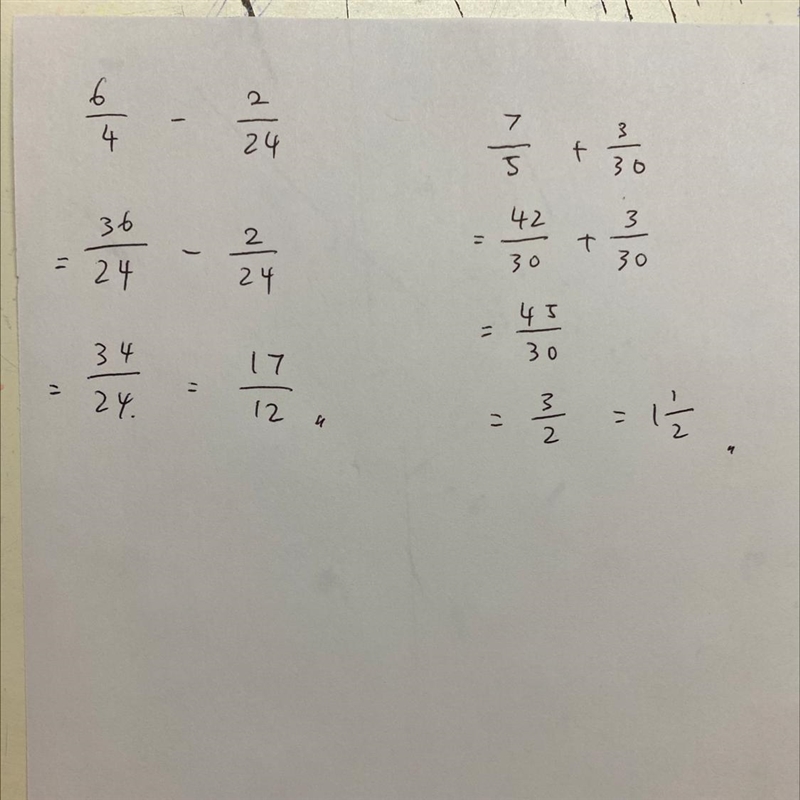 6/4 - 2/24
= 36/24 - 2/24
= 34/24. = 17/12 〃
7/5 + 3/30
= 42/30 + 3/30
= 45/30
= 3/2 = 1 1/2 〃